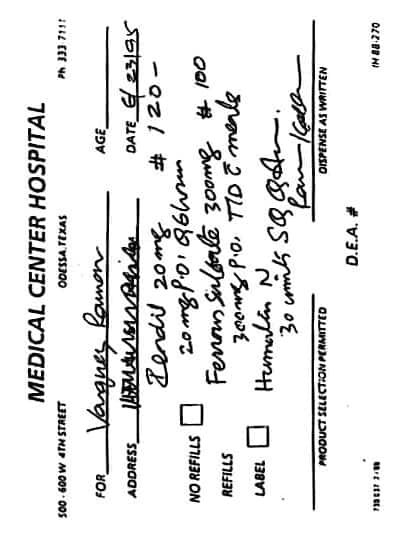 MEDICAL CENTER HOSPITAL
500 - 600 W 4TH STREET ODESSA, TEXAS Ph 333 7111
FOR Vasquez Ramon AGE
ADDRESS DATE 6/23/95
20 mg # 120 -
20 mg P.O. Q6 hours
NO REFILLS
Ferrous Sulfate 300mg # 100
REFILLS
300mg P.O. TID c̄ meals
LABEL
Humulin N
30 units SQ QAm.
PRODUCT SELECTION PERMITTED DISPENSE AS WRITTEN
D.E.A. #